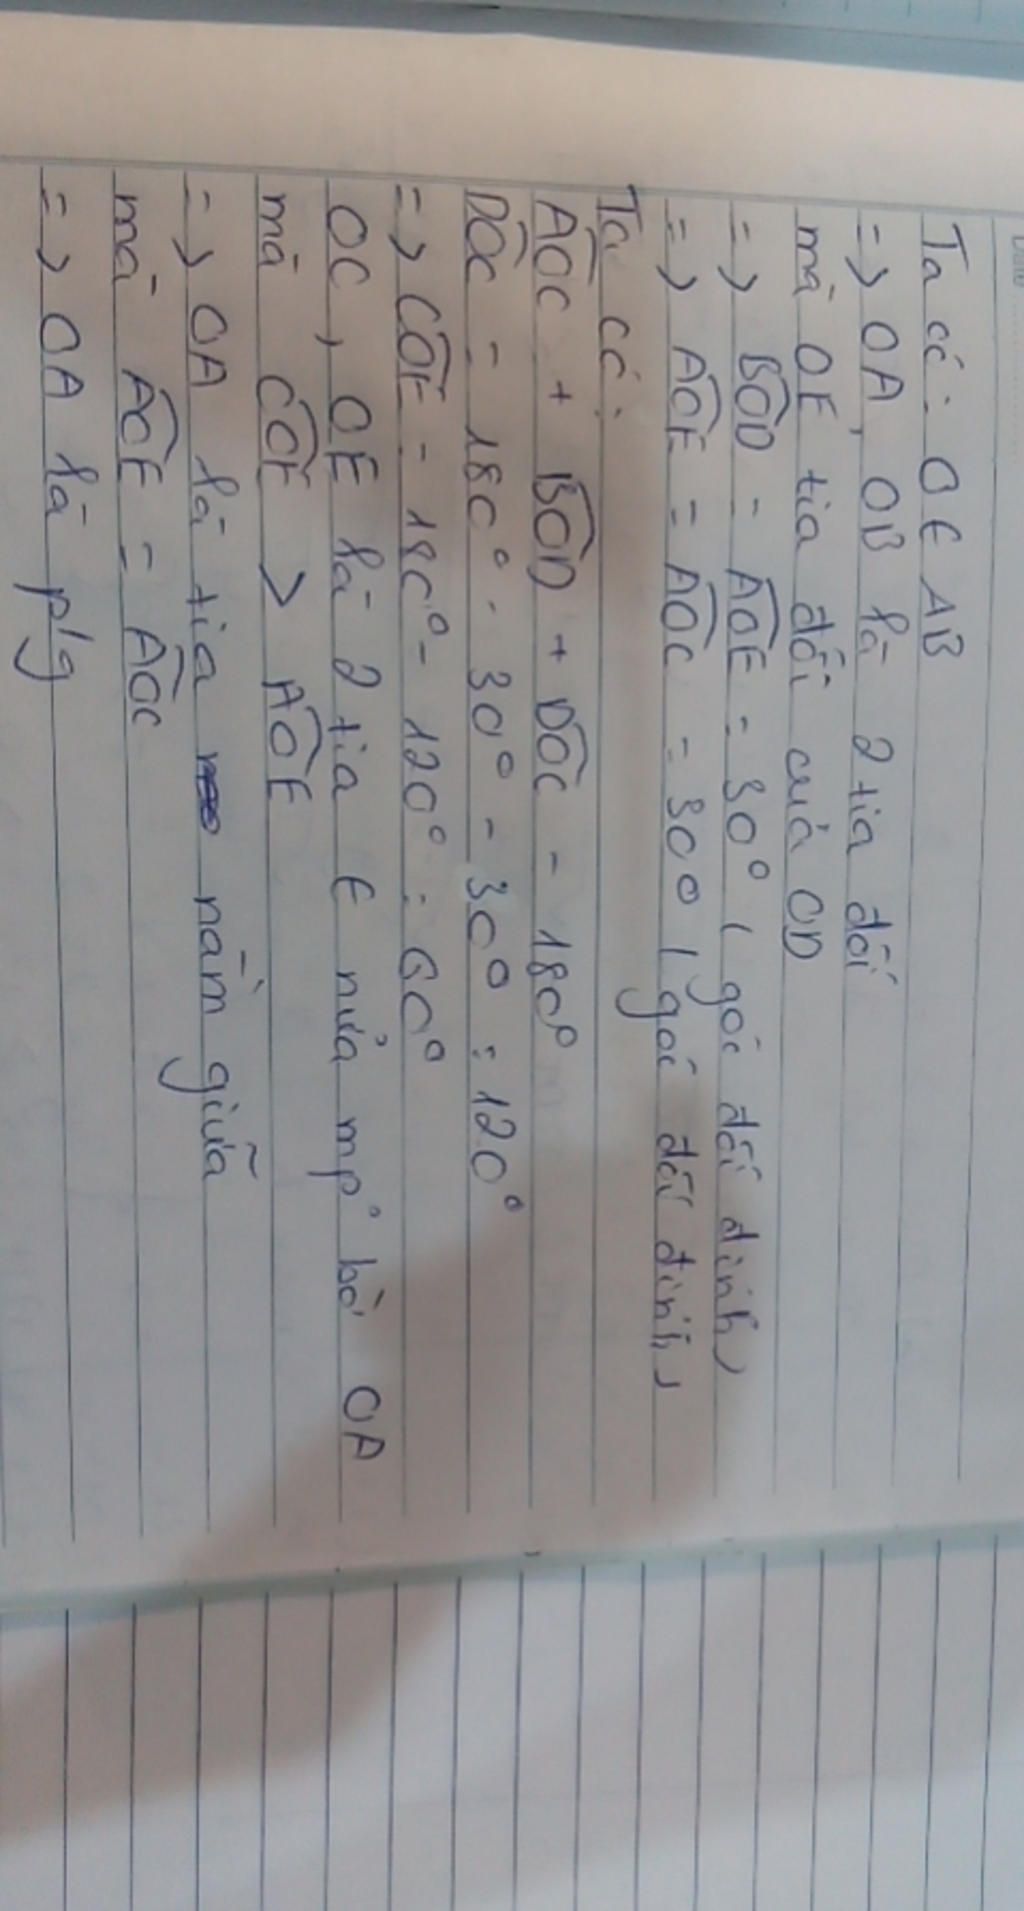 Ta có: O ∈ AB
=> OA, OB là 2 tia đối
mà OE tia đối của OD
=> BOD = AOE = 30° (góc đối đỉnh)
=> AOE = AOC = 30° (góc đối đỉnh)
Ta có:
AOC + BOD + DOC = 180°
DOC = 180° - 30° - 30° = 120°
=> COE = 180° - 120° = 60°
OC, OE là 2 tia ∈ nửa mp bờ OA
mà COE > AOE
=> OA là tia nằm giữa
mà AOE = AOC
=> OA là p/g